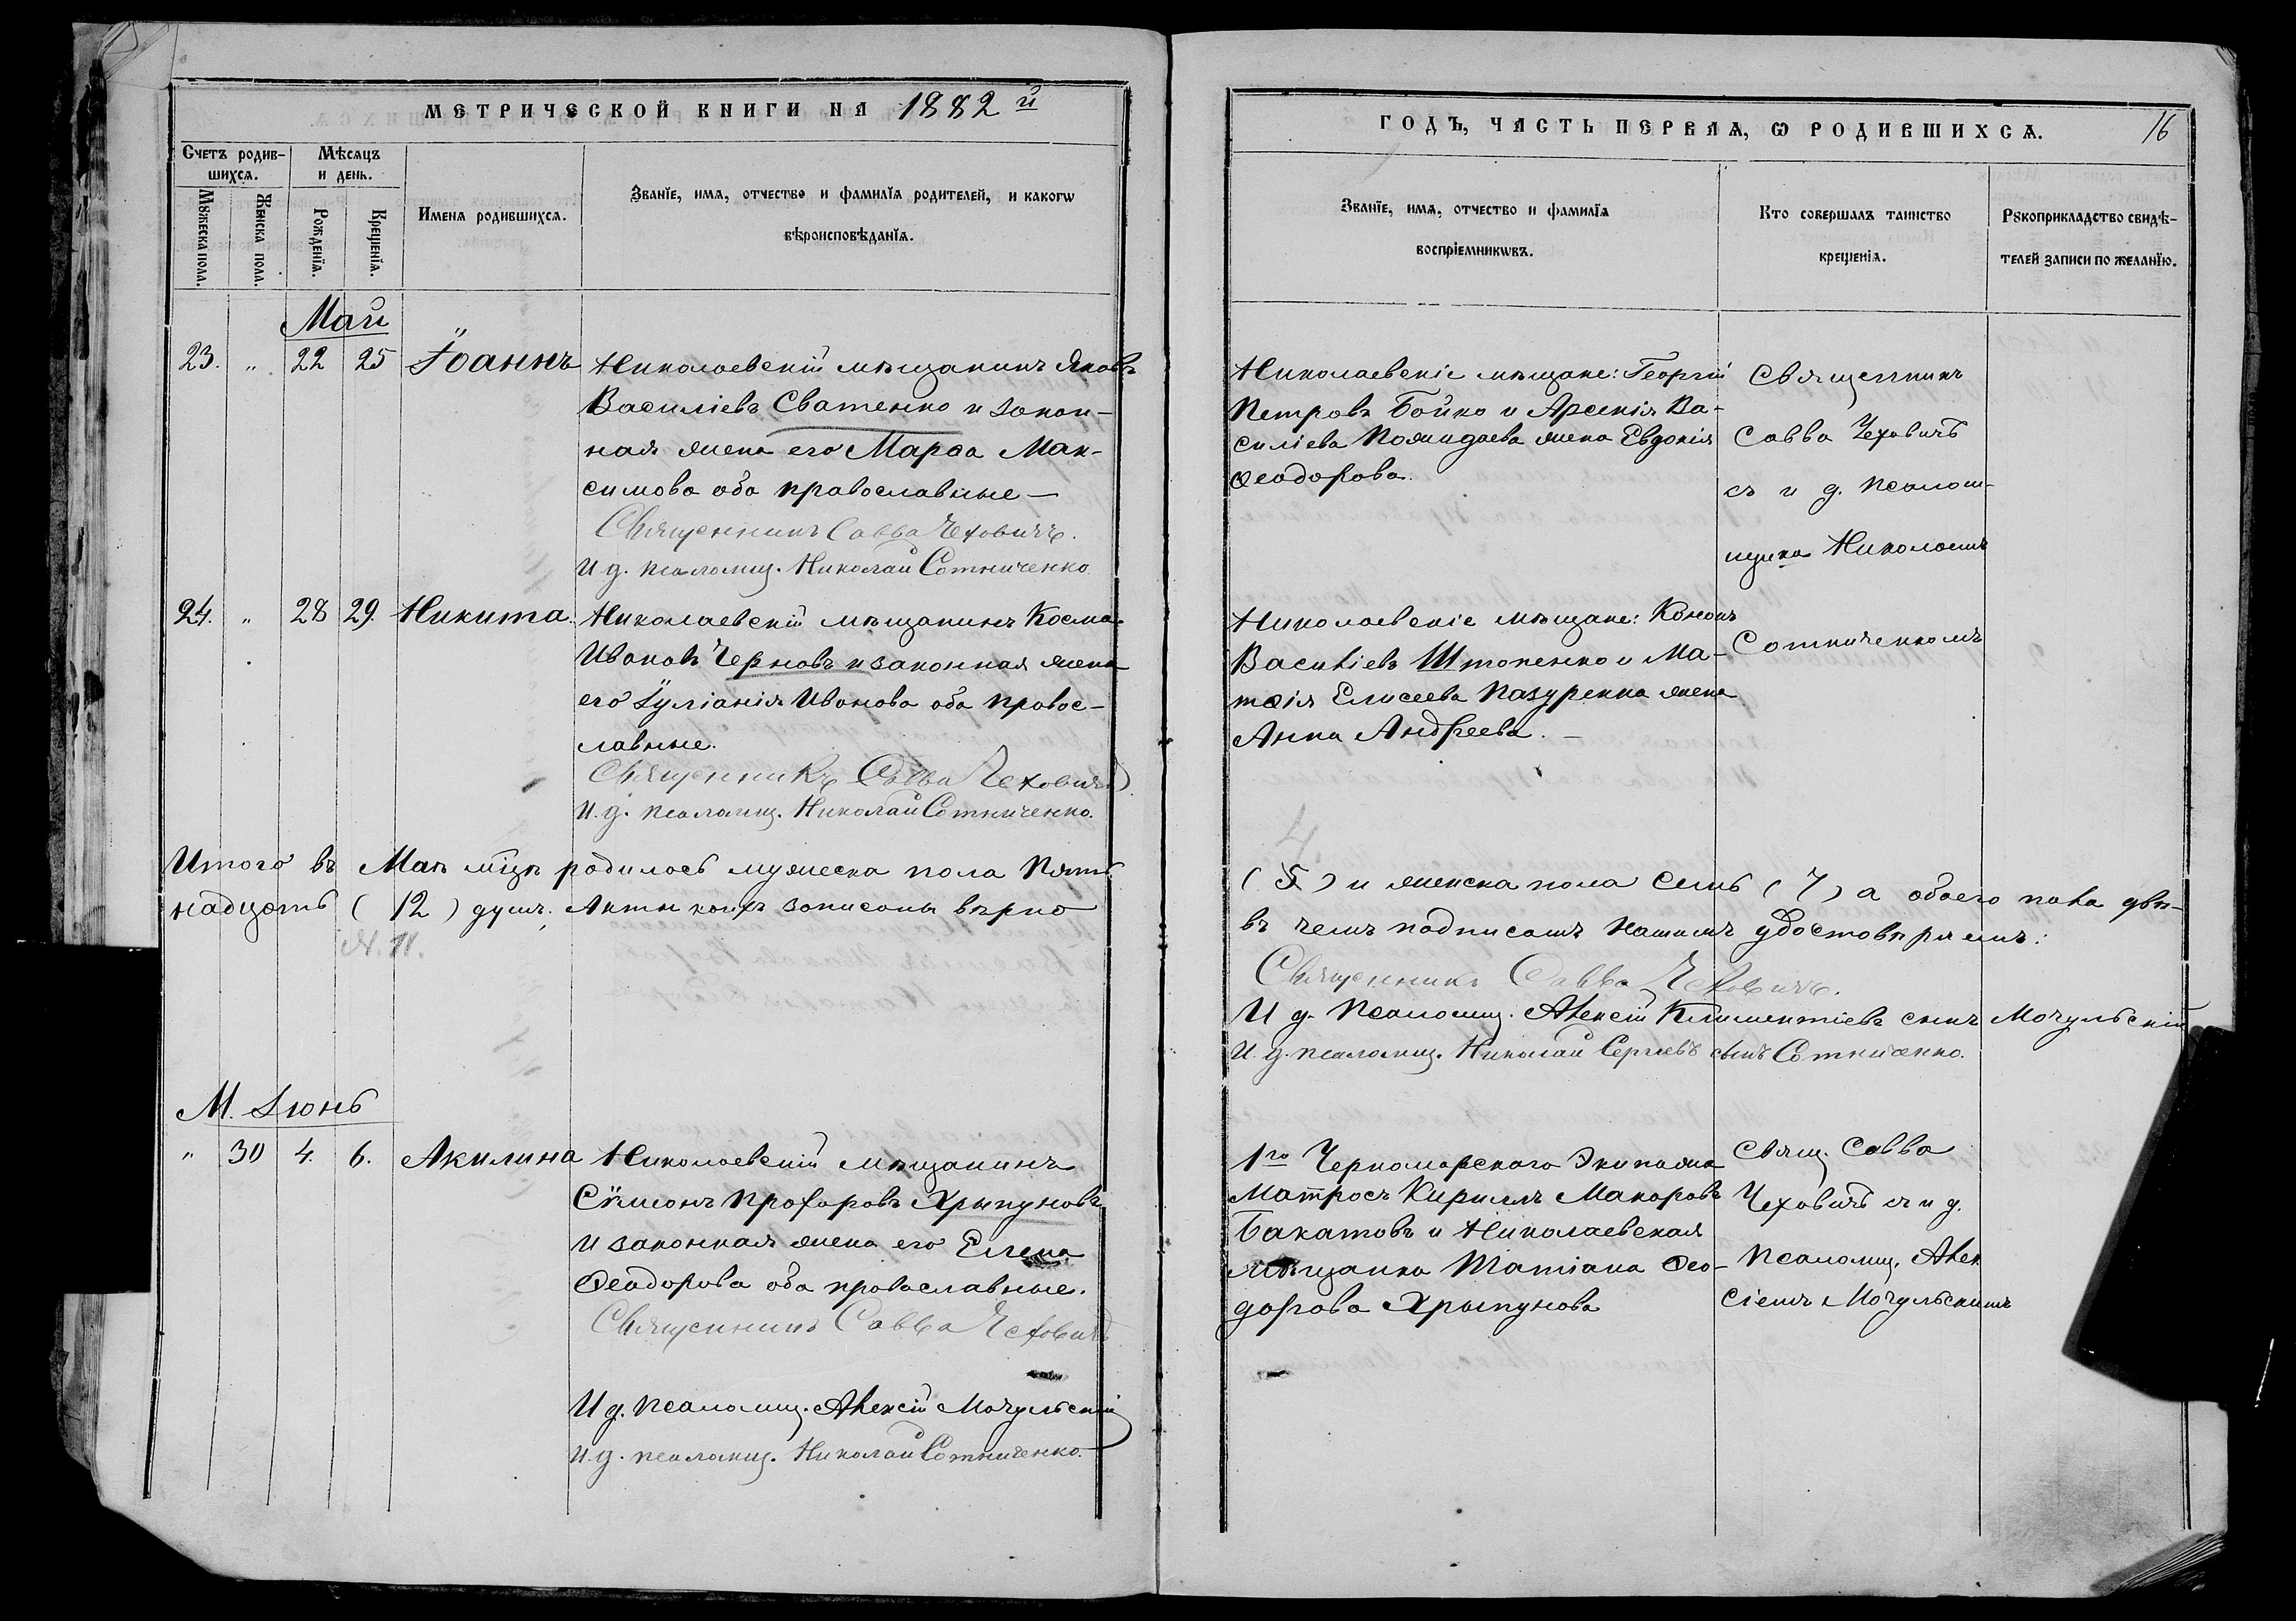 МЕТРИЧЕСКОЙ КНИГИ НА 1882 й
Счетъ родив-
шихсѧ.
Мѣсяцъ
и день.
Мꙋжеска пола.
Женска пола.
Рожденїѧ.
Крещенїѧ.
Имена родившихсѧ.
Званїе, имѧ, отчество и фамилїѧ родителей, и какогѡ
вѣроисповѣданїѧ.
Май
23. " 22 25 Іоаннъ
Николаевскій мѣщанинъ Яковъ
Василіевъ Сватенко и закон-
ная жена его Марѳа Мак-
симова оба православные —
Священникъ Савва Чеховичъ.
И д. псаломщ. Николай Сотниченко.
24. " 28 29. Никита.
Николаевскій мѣщанинъ Косма
Ивановъ Черновъ и законная жена
его Іуліанія Иванова оба правос-
лавные.
Священникъ Савва Чеховичъ.
И. д. псаломщ. Николай Сотниченко.
Итого въ Маѣ мцѣ родилось мужеска пола Пять
надцать (12) душъ. Акты коихъ записаны вѣрно
М. Іюнь
" 30 4. 6. Акилина
Николаевскій мѣщанинъ
Сѵмеонъ Прохоровъ Хрыпуновъ
и законная жена его Елена
Ѳеодорова оба православные.
Священникъ Савва Чеховичъ
И д. псаломщ. Алексій Мочульскій
И. д. псаломщ. Николай Сотниченко.
ГОДЪ, ЧАСТЬ ПЕРВАѦ, Ѡ РОДИВШИХСѦ.
16
Званїе, имѧ, отчество и фамилїѧ
воспрїемникѡвъ.
Кто совершалъ таинство
крещенїѧ.
Рꙋкоприкладство свидѣ-
телей записи по желанїю.
Николаевскіе мѣщане: Георгій
Петровъ Бойко и Арсенія Ва-
силіева жена Евдокія
Ѳеодорова.
Священникъ
Савва Чеховичъ
съ и д. псалом-
щика Николаемъ
Сотниченкомъ
Николаевскіе мѣщане: Кононъ
Василіевъ Штопенко и Ма-
тѳія Елисеева Пазуренка жена
Анна Андреева. —
(5) и женска пола Семь (7) а обоего пола двѣ-
въ чемъ подписомъ нашимъ удостовѣряемъ:
Священникъ Савва Чеховичъ.
И д. Псаломщ. Алексій Климентіевъ сынъ Мочульскій
И. д. псаломщ. Николай Сергіевъ сынъ Сотниченко.
1го Черноморскаго Экипажа
Матросъ Кирилъ Макаровъ
Бакатовъ и Николаевская
мѣщанка Татіана Ѳео-
дорова Хрыпунова
Свящ. Савва
Чеховичъ съ и д.
Псаломщ. Алек
сіемъ Мочульскимъ